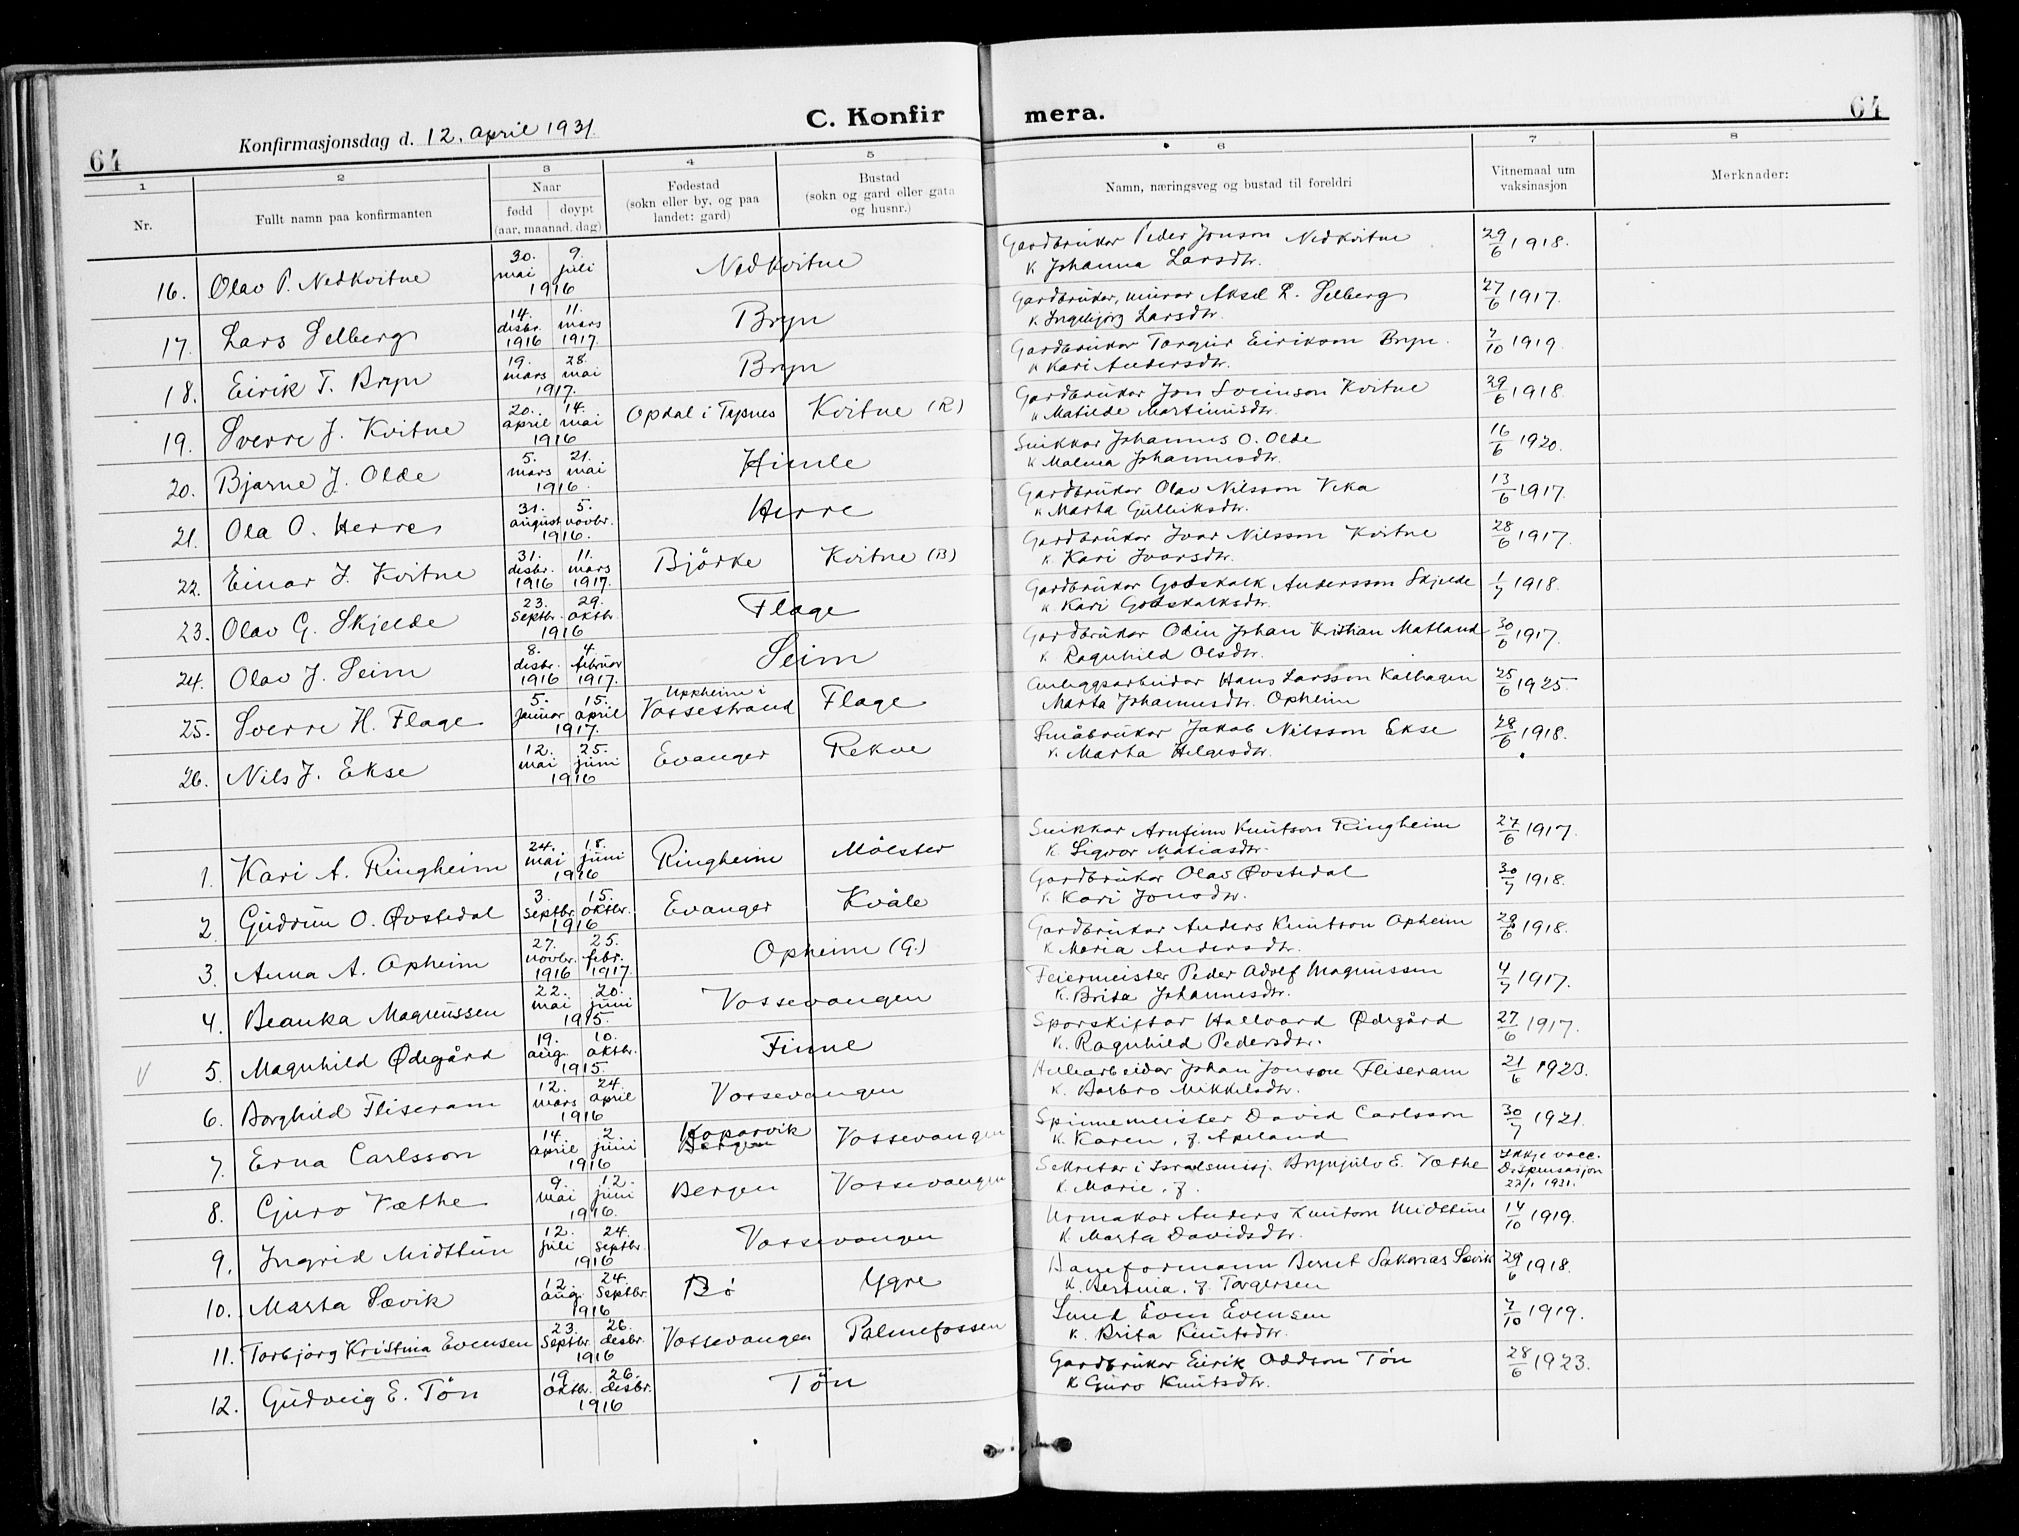 64
Konfirmasjonsdag d. 12. april 1931.
C. Konfir
mera.
64
1
2
3
4
5
6
7
8
Nr.
Fullt namn paa konfirmanten
Naar
fødd | døypt
(aar, maanad, dag)
Fødestad
(sokn eller by, og paa
landet: gard)
Bustad
(sokn og gard eller gata
og husnr.)
Namn, næringsveg og bustad til foreldri
Vitnemaal um
vaksinasjon
Merknader:
16. Olav P. Nedkvitne 30. mai 9. juli 1916 Nedkvitne Gardbrukar Peder Jonson Nedkvitne 29/6 1918.
K. Johanna Larsdtr.
17. Lars Selberg 14. disbr. 1916 11. mars 1917 Bryn Gardbrukar, murar Aksel L. Selberg 27/6 1917.
K. Ingebjørg Larsdtr.
18. Eirik T. Bryn 19. mars 28. mai 1917. Bryn Gardbrukar Torgeir Eirikson Bryn. 7/10 1919.
K. Kari Andersdtr.
19. Sverre J. Kvitne 20. april 14. mai 1916 Opdal i Tysnes Kvitne (R) Gardbrukar Jon Sveinson Kvitne 29/6 1918.
K. Matilde Martinusdtr.
20. Bjarne J. Olde 5. mars 21. mai 1916. Himle Snikkar Johannes O. Olde 16/6 1920.
K. Malena Johannesdtr.
21. Ola O. Herre 31. august 5. novbr. 1916. Herre Gardbrukar Olav Nilsson Veka 13/6 1917.
K. Marta Gulleiksdtr.
22. Einar I. Kvitne 31. disbr. 1916 11. mars 1917. Bjørke Kvitne (B) Gardbrukar Ivar Nilsson Kvitne 28/6 1917.
K. Kari Ivarsdtr.
23. Olav G. Skjelde 23. Septbr. 29. oktbr. 1916 Flage Gardbrukar Godskalk Andersson Skjelde 1/7 1918.
K. Kari Godskalksdtr.
24. Olav J. Seim 8. disbr. 1916 4. februar 1917. Seim Gardbrukar Odin Johan Kristian Matland 30/6 1917.
K. Ragnhild Olsdtr.
25. Sverre H. Flage 5. januar 15. april 1917. Uppheim i Vossestrand Flage Anleggsarbeidar Hans Larsson Kalhagen 25/6 1925.
Marta Johannesdtr. Opheim
26. Nils J. Ekse 12. mai 25. juni 1916 Evanger Rekve Småbrukar Jakob Nilsson Ekse 28/6 1918.
K. Marta Helgesdtr.
1. Kari A. Ringheim 24. mai 18. juni 1916 Ringheim Mølster Snikkar Arnfinn Knutson Ringheim 27/6 1917.
K. Sigvor Matiasdtr.
2. Gudrun O. Øvstedal 3. Septbr. 15. oktbr. 1916 Evanger Kvåle Gardbrukar Olav Øvstedal 30/7 1918.
K. Kari Jonsdtr.
3. Anna A. Opheim 27. novbr. 1916 25. febr. 1917 Opheim (G.) Gardbrukar Anders Knutson Opheim 29/6 1918.
K. Maria Andersdtr.
4. Beanka Magnussen 22. mai 20. juni 1915. Vossevangen Feiermeister Peder Adolf Magnussen 4/7 1917.
K. Brita Johannesdtr.
V 5. Magnhild Ødegård 19. aug. 10. oktbr. 1915. Finne Sporskiftar Hallvard Ødegård 27/6 1917.
K. Ragnhild Pedersdtr.
6. Borghild Fliseram 12. mars 24. april 1916 Vossevangen Johan Jonson Fliseram 21/6 1923.
K. Barbro Mikkelsdtr.
7. Erna Carlsson 14. april 2. juni 1916 Koparvik Bergen Vossevangen Spinnemeister David Carlsson 30/7 1921.
K. Karen, f. Apeland
8. Guro Væthe 9. mai 12. juni 1916. Bergen Vossevangen Sekretær i Israelsmisj. Brynjulv E. Væthe Ikkje vacc. Dispensasjon 22/1 1931.
K. Marie, f.
9. Ingrid Midttun 12. juli 24. Septbr. 1916 Vossevangen Urmakar Anders Knutson Midttun 14/10 1919.
K. Marta Davidsdtr.
10. Marta Sævik 12. aug. 24. Septbr. 1916 Bø Ygre Baneformann Bernt Sakarias Sævik 29/6 1918.
K. Bertina, f. Torgersen
11. Torbjørg Kristina Evensen 23. Septbr. 26. desbr. 1916 Vossevangen Palmefossen Smed Even Evensen 7/10 1919.
K. Brita Knutsdtr.
12. Gudveig E. Tøn 19. oktbr. 26. desbr. 1916 Tøn Gardbrukar Eirik Oddson Tøn 28/6 1923.
K. Guro Knutsdtr.